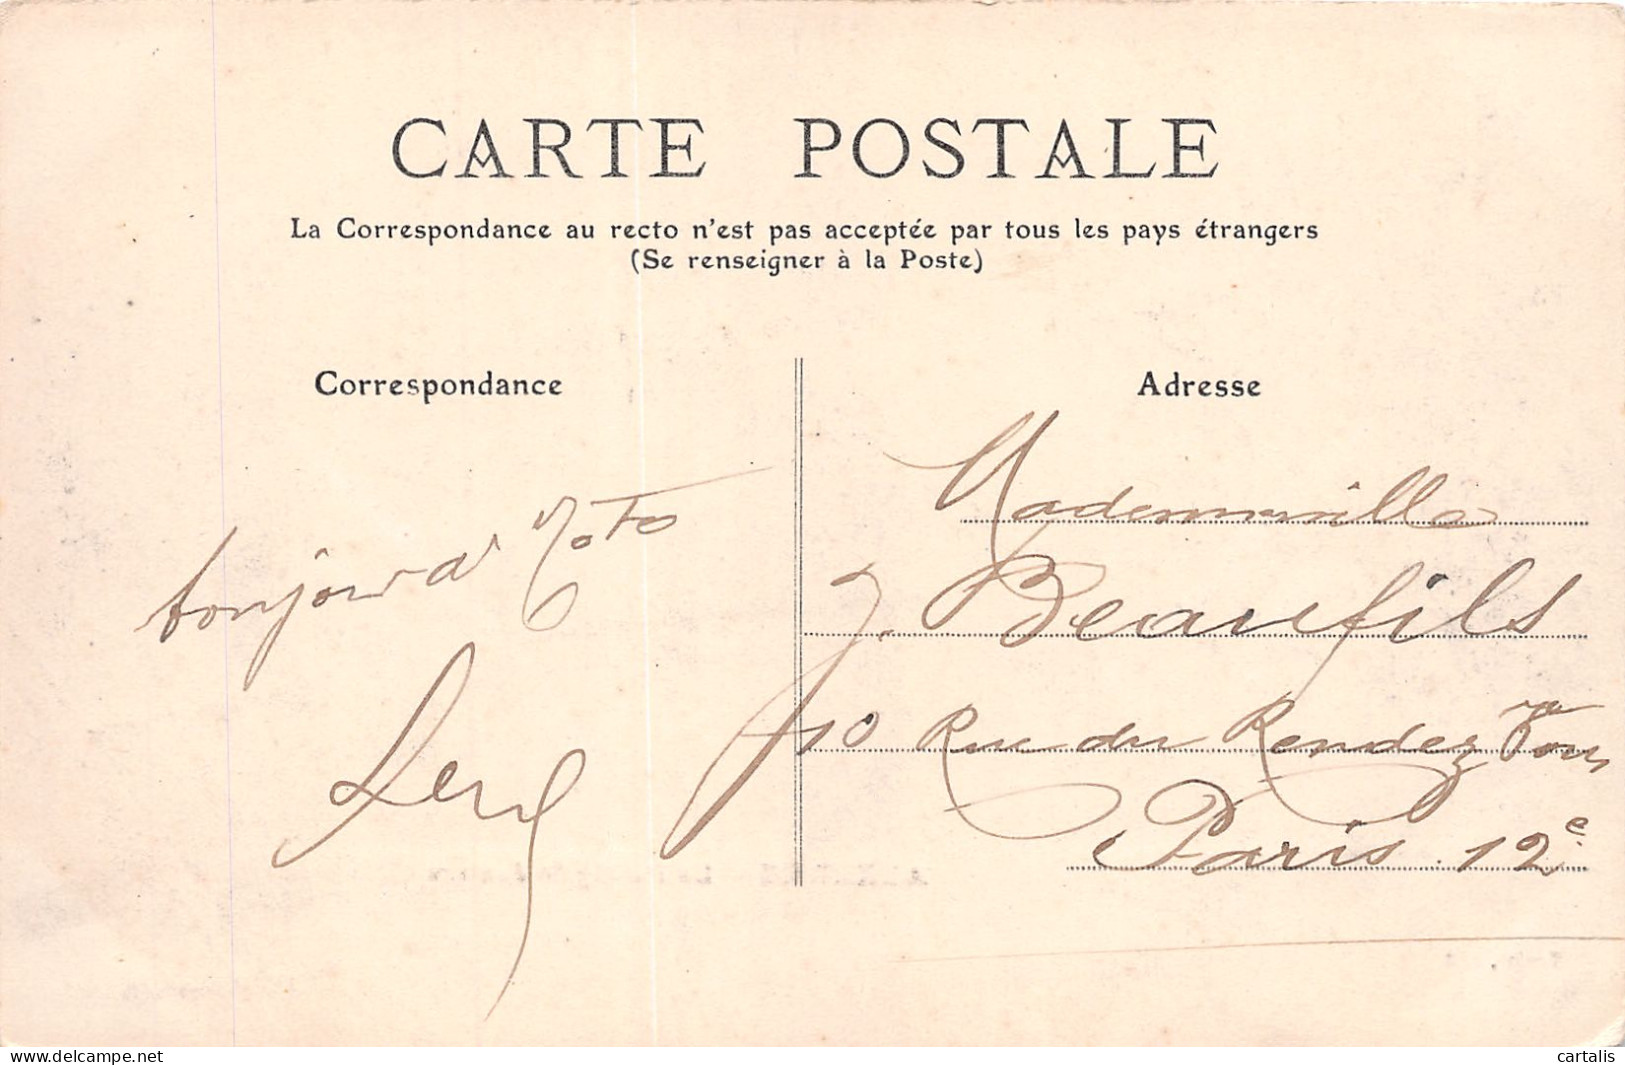 CARTE POSTALE
La Correspondance au recto n'est pas acceptée par tous les pays étrangers
(Se renseigner à la Poste)
Correspondance
bonjour à Toto
Adresse
Mademoiselle
J. Beaufils
10 Rue du Rendez Vous
Paris 12e
www.delcampe.net
cartalis